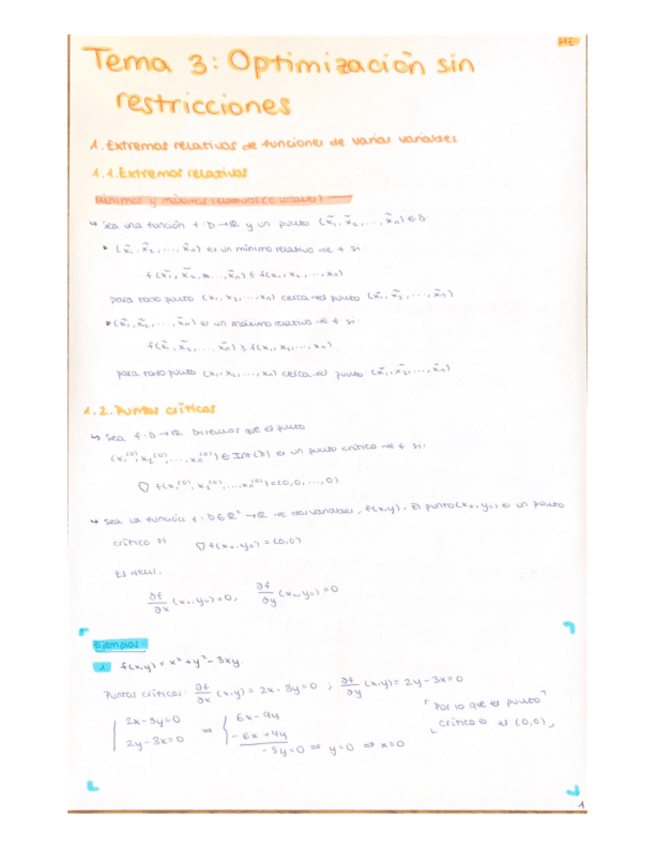 ME
Tema 3: Optimización sin
restricciones
1. Extremos relativos de funciones de varias variables
1.1. Extremos relativos
Mínimos y máximos relativos (o locales)
↳ Sea una función f: D→ℝ y un punto (x̃₁, x̃₂, ..., x̃ₙ) ∈ D
• (x̃₁, x̃₂, ..., x̃ₙ) es un mínimo relativo de f si:
f(x̃₁, x̃₂, ..., x̃ₙ) ≤ f(x₁, x₂, ..., xₙ)
para todo punto (x₁, x₂, ..., xₙ) cerca del punto (x̃₁, x̃₂, ..., x̃ₙ)
• (x̃₁, x̃₂, ..., x̃ₙ) es un máximo relativo de f si:
f(x̃₁, x̃₂, ..., x̃ₙ) ≥ f(x₁, x₂, ..., xₙ)
para todo punto (x₁, x₂, ..., xₙ) cerca del punto (x̃₁, x̃₂, ..., x̃ₙ)
1.2. Puntos críticos
↳ Sea f: D→ℝ. Diremos que el punto
(x₁⁽⁰⁾, x₂⁽⁰⁾, ..., xₙ⁽⁰⁾) ∈ Int(D) es un punto crítico de f si:
∇ f(x₁⁽⁰⁾, x₂⁽⁰⁾, ..., xₙ⁽⁰⁾) = (0,0, ..., 0)
↳ Sea la función f: D∈ℝ² → ℝ de dos variables, f(x,y). El punto (x₀, y₀) es un punto
crítico si ∇ f(x₀, y₀) = (0,0)
Es decir,
∂f/∂x (x₀, y₀) = 0, ∂f/∂y (x₀, y₀) = 0
Ejemplos:
1 f(x,y) = x² + y² - 3xy.
Puntos críticos: ∂f/∂x (x,y) = 2x - 3y = 0 ; ∂f/∂y (x,y) = 2y - 3x = 0
2x - 3y = 0 ⇒ 6x - 9y
2y - 3x = 0 -6x + 4y
-5y = 0 ⇒ y = 0 ⇒ x = 0
Por lo que el punto
crítico es el (0,0)
1